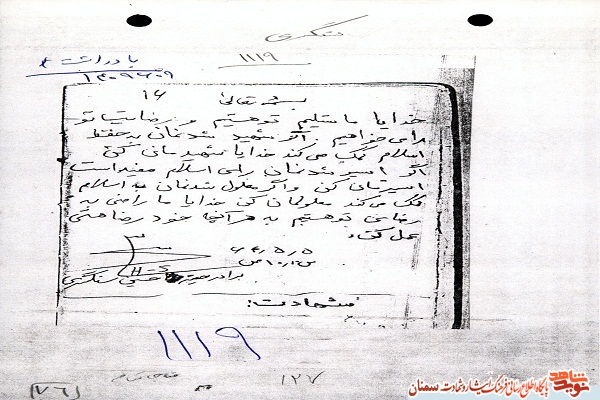 سنگسری
۱۱۱۹
یادداشت
بسمه تعالی
۱۶
خدایا ما تسلیم تو هستیم و رضایت تو
را می خواهیم اگر شهید شدنمان به حفظ
اسلام کمک می کند خدایا شهیدمان کن
اگر اسیر شدنمان برای اسلام مفید است
اسیرمان کن و اگر معلول شدنمان به اسلام
کمک می کند معلولمان کن خدایا ما راضی به
رضای تو هستیم به هر آنچه خود رضا هستی
عمل کن
۶۶/۵/۵
برادر سنگسری
شهادت:
۱۱۱۹
۱۲۷
(۷۶)
نوید شاهد
پایگاه اطلاع رسانی فرهنگ ایثار و شهادت سمنان